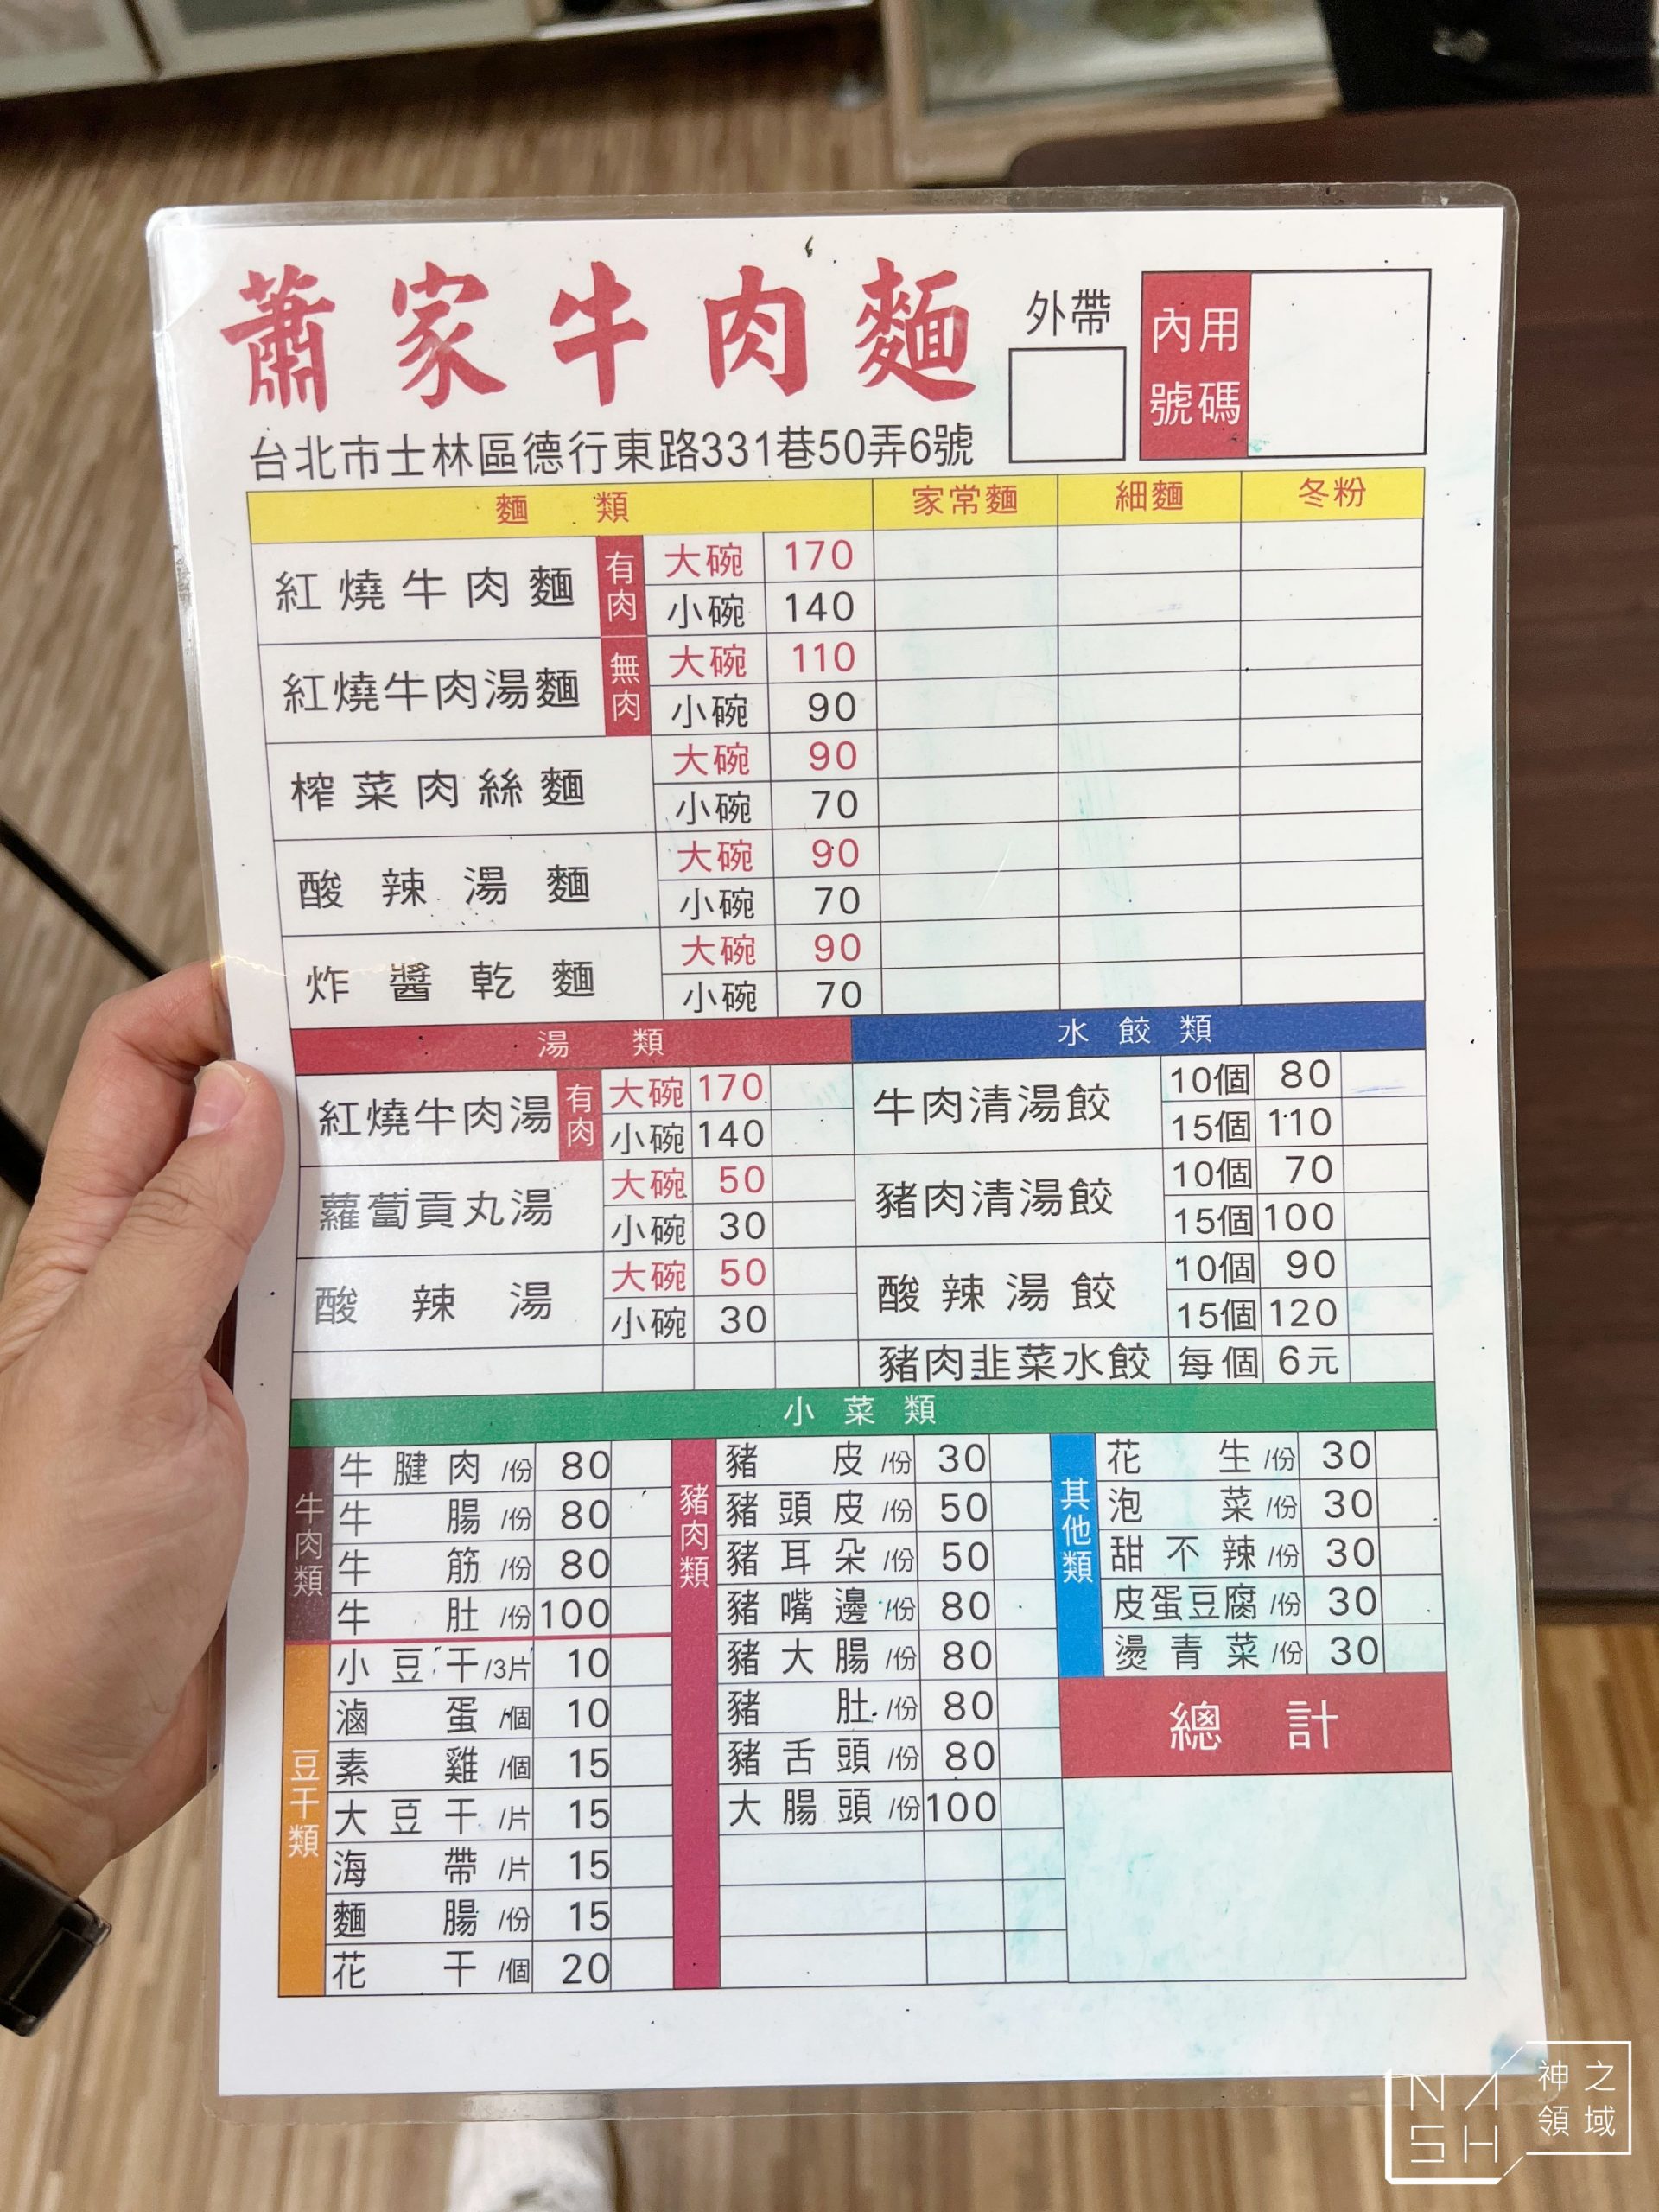 蕭家牛肉麵
外帶
內用
號碼
台北市士林區德行東路331巷50弄6號
麵類 家常麵 細麵 冬粉
紅燒牛肉麵 有肉 大碗 170
小碗 140
紅燒牛肉湯麵 無肉 大碗 110
小碗 90
榨菜肉絲麵 大碗 90
小碗 70
酸辣湯麵 大碗 90
小碗 70
炸醬乾麵 大碗 90
小碗 70
湯類
紅燒牛肉湯 有肉 大碗 170
小碗 140
蘿蔔貢丸湯 大碗 50
小碗 30
酸辣湯 大碗 50
小碗 30
水餃類
牛肉清湯餃 10個 80
15個 110
豬肉清湯餃 10個 70
15個 100
酸辣湯餃 10個 90
15個 120
豬肉韭菜水餃 每個 6元
小菜類
牛肉類
牛腱肉/份 80
牛腸/份 80
牛筋/份 80
牛肚/份 100
豆干類
小豆干/3片 10
滷蛋/個 10
素雞/個 15
大豆干/片 15
海帶/片 15
麵腸/份 15
花干/個 20
豬肉類
豬皮/份 30
豬頭皮/份 50
豬耳朵/份 50
豬嘴邊/份 80
豬大腸/份 80
豬肚/份 80
豬舌頭/份 80
大腸頭/份 100
其他類
花生/份 30
泡菜/份 30
甜不辣/份 30
皮蛋豆腐/份 30
燙青菜/份 30
總計
NASH
神之領域